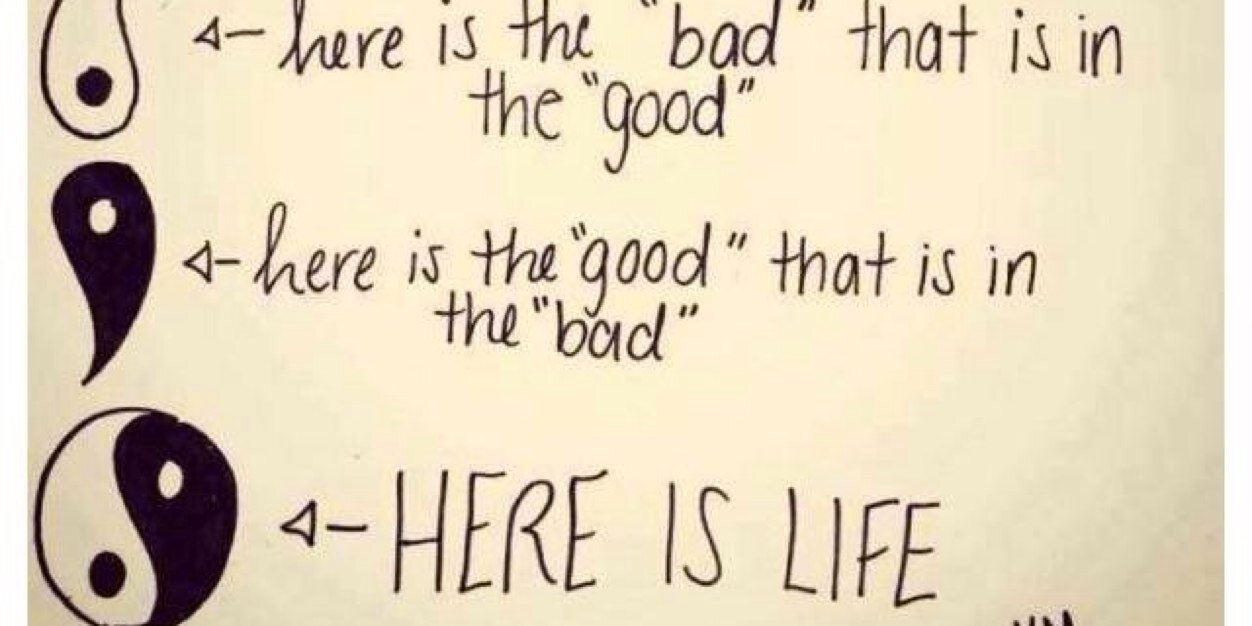 here is the "bad" that is in
the "good"
here is the "good" that is in
the "bad"
HERE IS LIFE